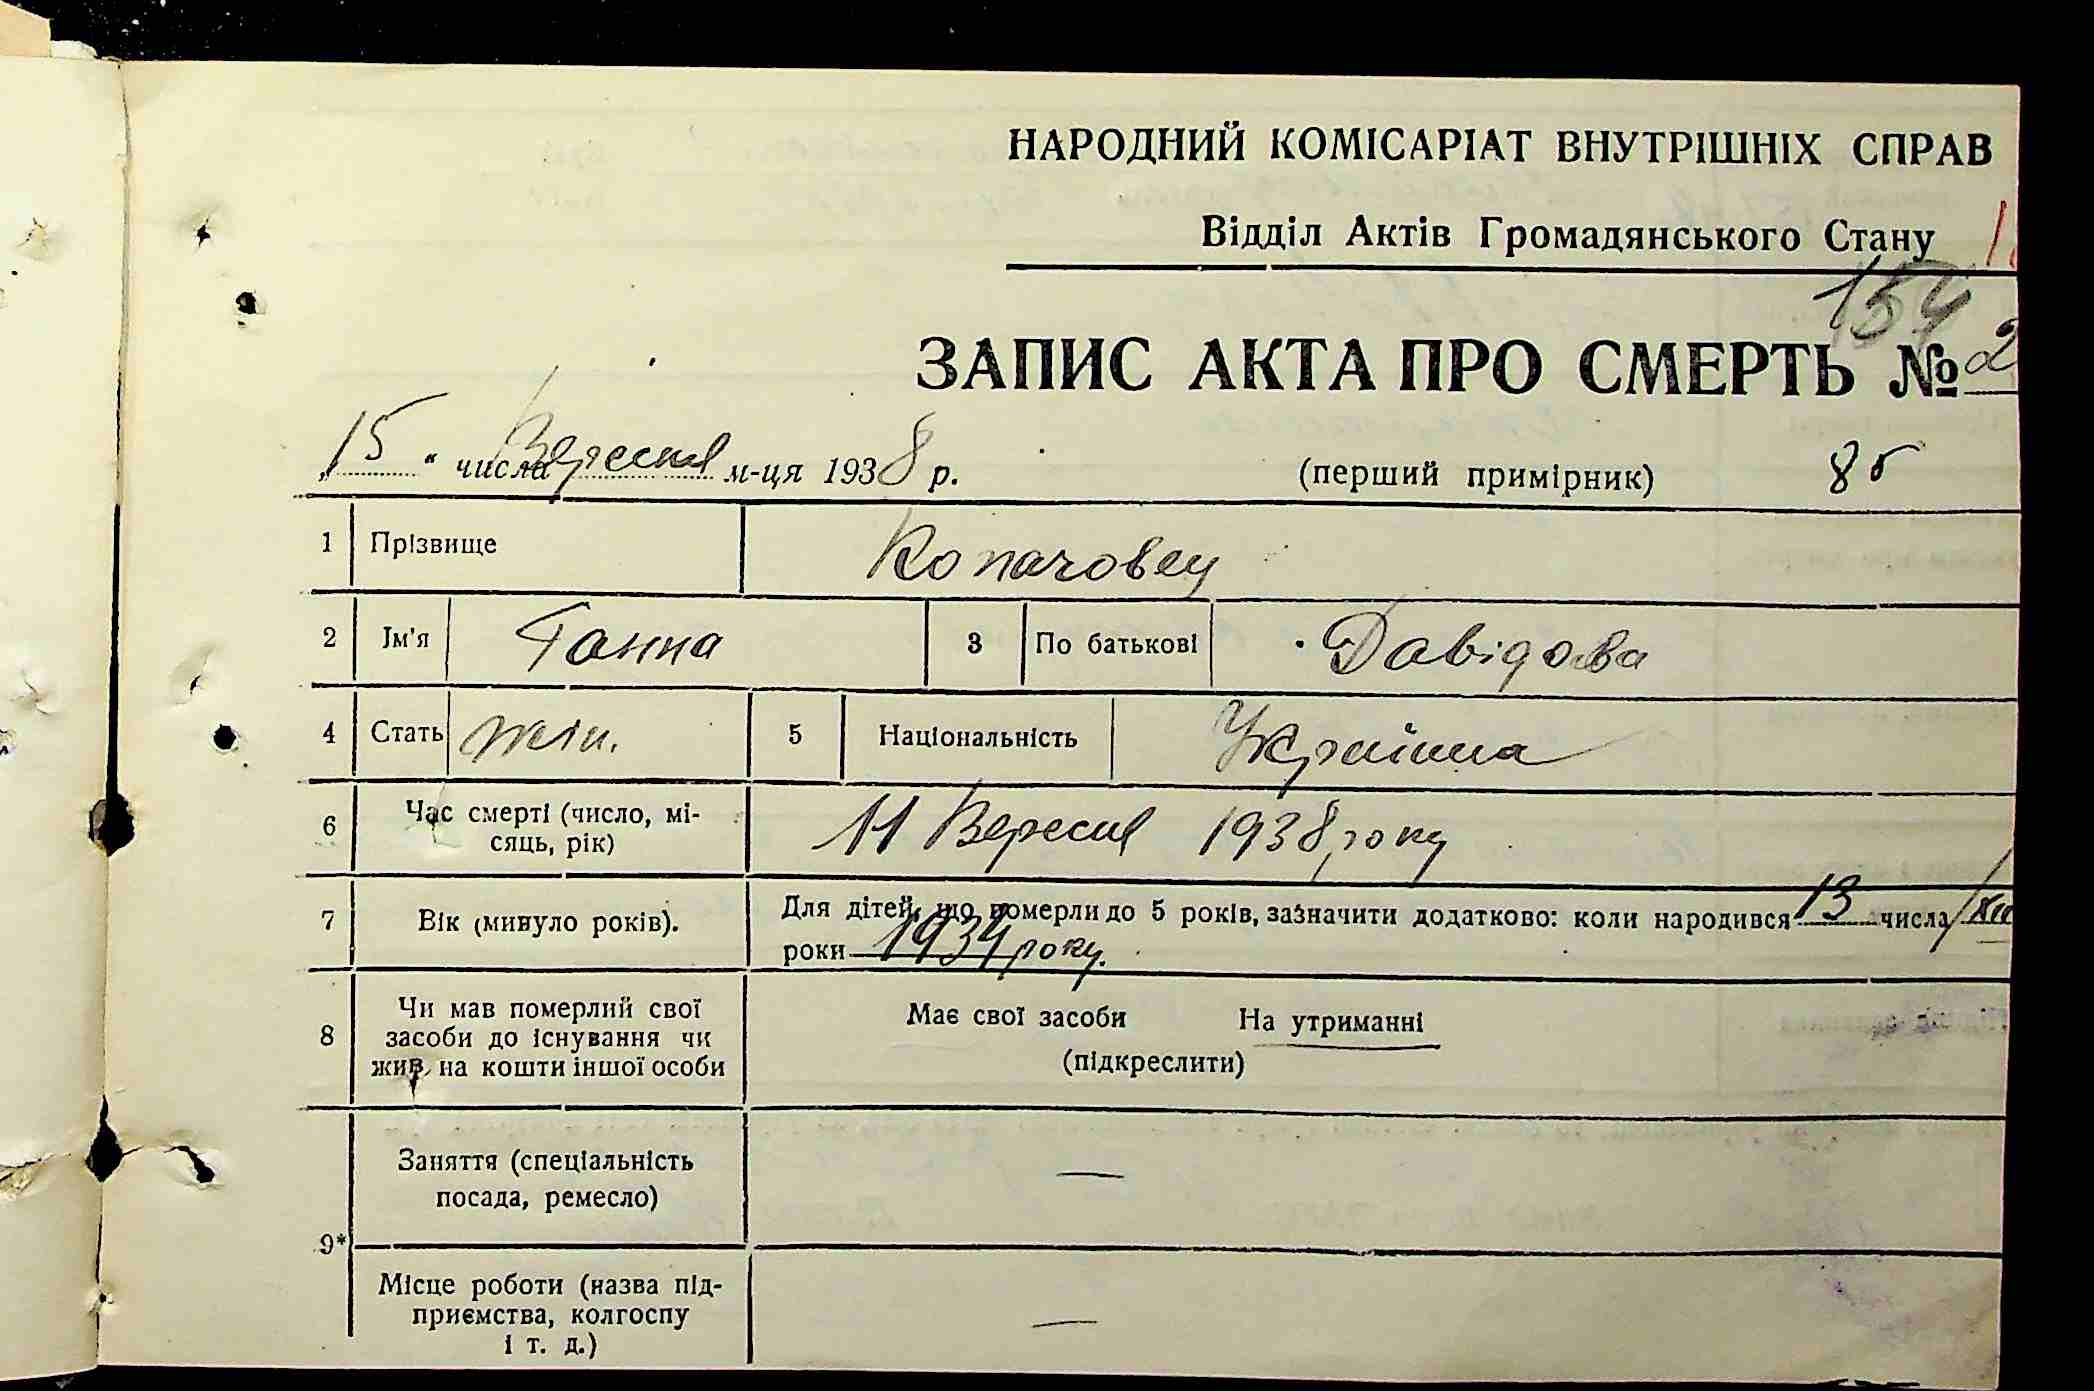 НАРОДНИЙ КОМІСАРІАТ ВНУТРІШНІХ СПРАВ
Відділ Актів Громадянського Стану
154
ЗАПИС АКТА ПРО СМЕРТЬ № 2
„15" числа Вересня м-ця 1938 р. (перший примірник) 86
1 Прізвище Копачовец
2 Ім'я Ганна 3 По батькові Давідова
4 Стать жін. 5 Національність Українка
6 Час смерті (число, мі-
сяць, рік) 11 Вересня 1938 року
7 Вік (минуло років). Для дітей, що померли до 5 років, зазначити додатково: коли народився 13 числа/XII
роки 1934 року.
8 Чи мав померлий свої
засоби до існування чи
жив на кошти іншої особи
Має свої засоби На утриманні
(підкреслити)
9* Заняття (спеціальність
посада, ремесло) —
Місце роботи (назва під-
приємства, колгоспу
і т. д.) —